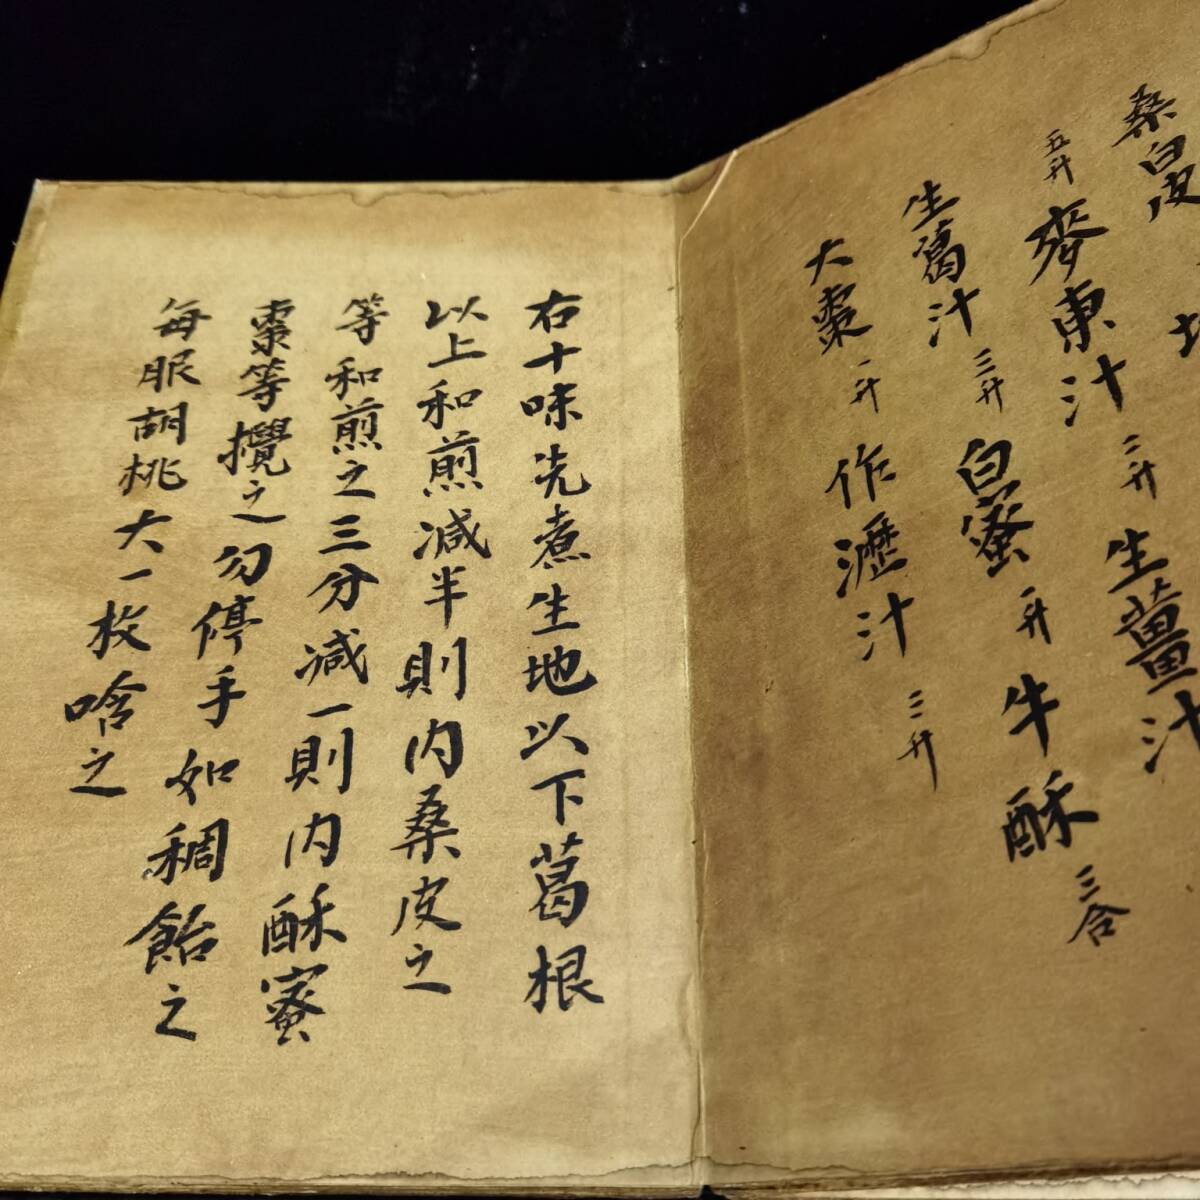 桑白皮
五升 麥東汁 二升 生薑汁
生葛汁 三升 白蜜 一升 牛酥 三合
大棗 一升 作瀝汁 三升
右十味先煮生地以下葛根
以上和煎減半則内桑皮之
等和煎之三分減一則内酥蜜
棗等攪之勿停手如稠飴之
每服胡桃大一枚啥之